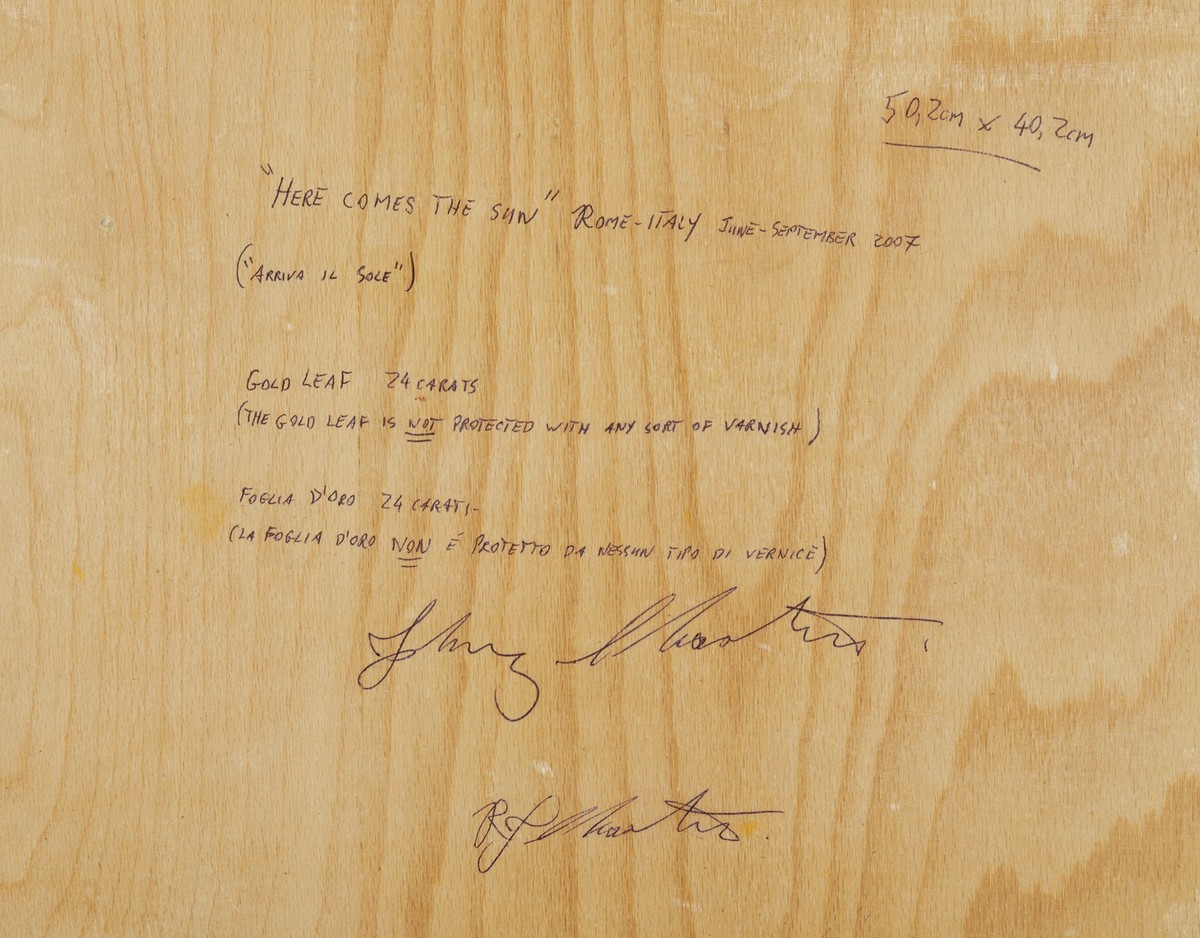 50,2cm x 40,2cm
"HERE COMES THE SUN" ROME-ITALY JUNE-SEPTEMBER 2007
("ARRIVA IL SOLE")
GOLD LEAF 24 CARATS
(THE GOLD LEAF IS NOT PROTECTED WITH ANY SORT OF VARNISH)
FOGLIA D'ORO 24 CARATI-
(LA FOGLIA D'ORO NON É PROTETTO DA NESSUN TIPO DI VERNICE)